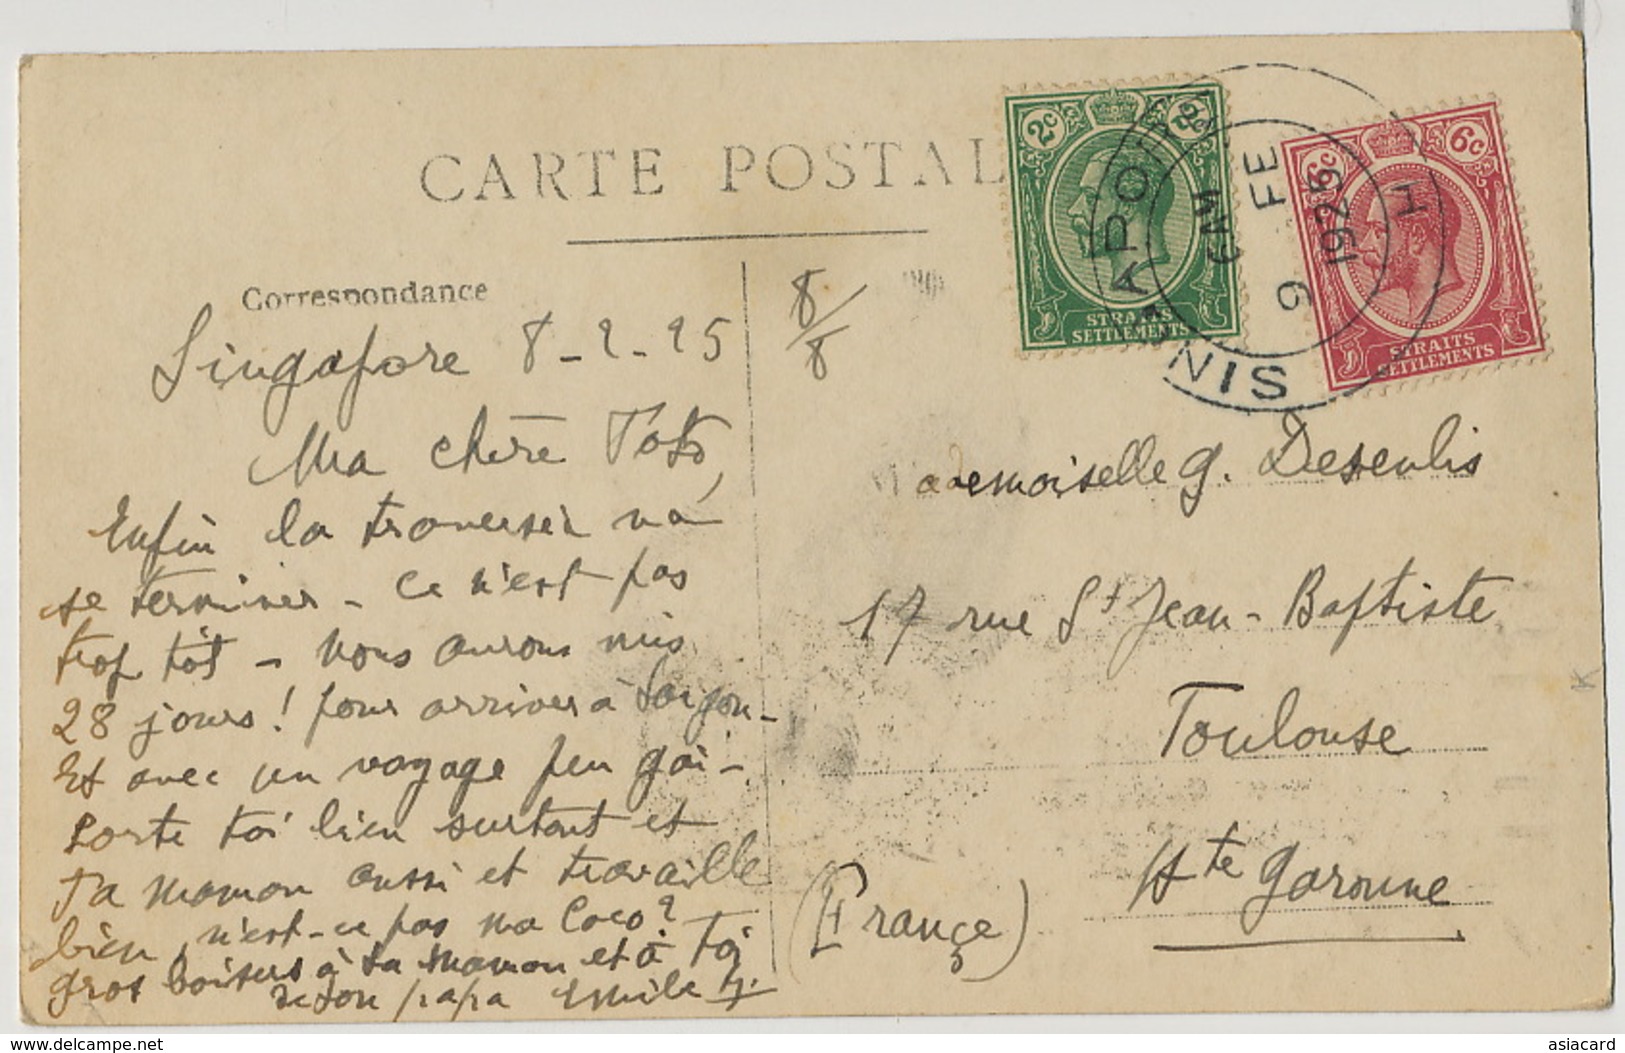 CARTE POSTAL
Correspondance
Singapore 8-2-25
8/8
Ma chère Toto,
Enfin la traversée va
se terminer - Ce n'est pas
trop tôt - Nous aurons mis
28 jours ! pour arriver à Saigon -
Et avec un voyage peu gai -
Porte toi bien surtout et
Ta maman aussi et travaille
bien, n'est-ce pas ma Coco?
gros baisers à ta maman et à Toi
de ton papa Emile
Mademoiselle G. Desenlis
17 rue St Jean-Baptiste
Toulouse
Hte Garonne
(France)
2c 2c
STRAITS
SETTLEMENTS
6c 6c
STRAITS
SETTLEMENTS
SINGAPORE
H
9 FE
1925
K
www.delcampe.net
asiacard